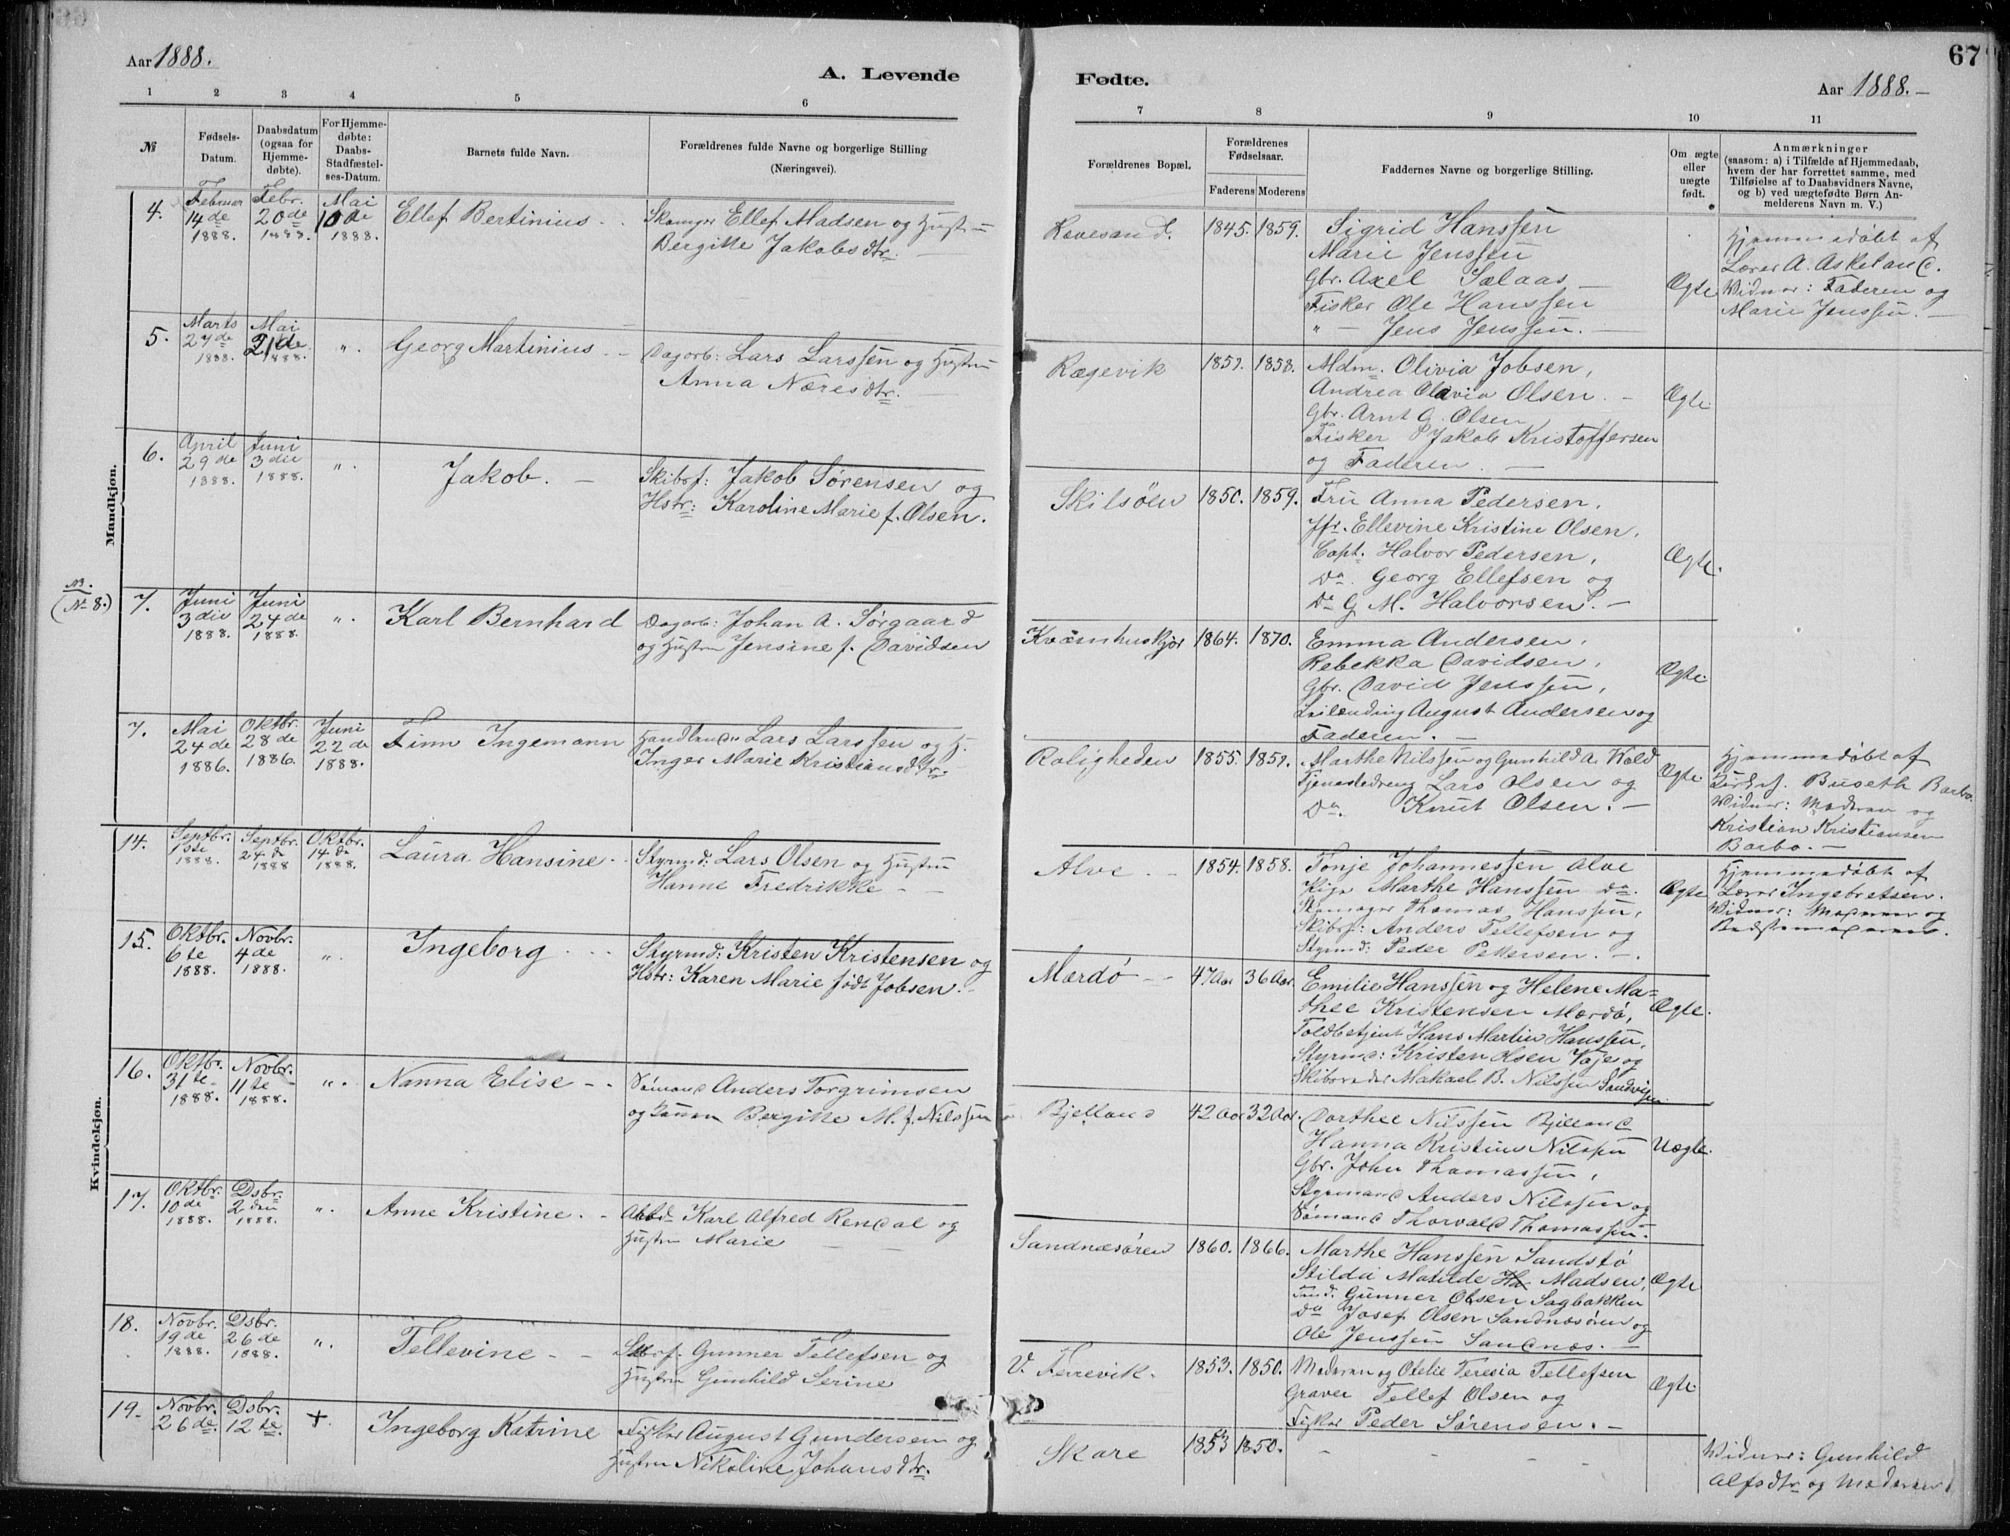 67
Aar 1888.
A. Levende Fødte.
Aar 1888.
1 2 3 4 5 6 7 8 9 10 11
№
Fødsels-Datum.
Daabsdatum (ogsaa for Hjemme-døbte).
For Hjemme-døbte: Daabs-Stadfæstel-ses-Datum.
Barnets fulde Navn.
Forældrenes fulde Navne og borgerlige Stilling
(Næringsvei).
Forældrenes Bopæl.
Forældrenes Fødselsaar.
Faderens Moderens
Faddernes Navne og borgerlige Stilling.
Om ægte eller uægte født.
Anmærkninger
(saasom: a) i Tilfælde af Hjemmedaab, hvem der har forrettet samme, med Tilføielse af to Daabsvidners Navne, og b) ved uægtefødte Børn Anmelderens Navn m. V.)
Mandkjøn.
4. Februar 14de 1888. Febr. 20de 1888. Mai 10de 1888. Ellef Bertinius
Ellef Madsen og Hustru
Bergitte Jakobsdtr.
Ravesand. 1845. 1859.
Sigrid Hanssen
Marie Jenssen
Gbr. Axel Salaas
Fisker Ole Hanssen
" Jens Jenssen.
Ægte
Hjemmedøbt af
Lærer A. Askeland.
Vidner: Faderen og
Marie Jenssen.
5. Marts 27de 1888. Mai 21de 1888. ". Georg Martinius
Dagarb: Lars Larssen og Hustru
Anna Næresdtr.
Rægevik 1858.
Mdm. Olivia Jobsen,
Andrea Olavia Olsen.
Gbr. Arnt G. Olsen
Fisker Jakob Kristoffersen
og Faderen.
Ægte.
6. April 29de 1888. Juni 3die 1888. ". Jakob.
Skibsf: Jakob Sørensen og
Hstr: Karoline Marie f. Olsen.
Skilsøen 1850. 1859.
Fru Anna Pedersen,
Jfr. Ellevine Kristine Olsen,
Capt. Halvor Pedersen,
Do. Georg Ellefsen og
Do G. M. Halvorsen.
Ægte.
NB. (№ 8.)
7. Juni 3die 1888. Juni 24de 1888. ". Karl Bernhard
Dagarb: Johan A. Sørgaard
og Hustru Jensine f. Davidsen
1864. 1870.
Emma Andersen,
Rebekka Davidsen,
Gbr. David Jenssen,
August Andersen og
Faderen.
Ægte.
7. Mai 24de 1886. Oktbr. 28de 1886. Juni 22de 1888. Finn Ingemann
Lars Larssen og H.
Inger Marie Kristiansdtr.
Roligheden 1855.
Marthe Nilssen og Gunhild A. Wold
Tjenestedreng Lars Olsen og
Do. Knut Olsen.
Ægte.
Hjemmedøbt af
Buseth Barbo.
Vidner: Moderen og
Kristian Kristiansen
Barbo.
Kvindekjøn.
14. Septbr. 1ste 1888. Septbr. 24de 1888 Oktbr. 14de 1888. Laura Hansine
Styrmd: Lars Olsen og Hustru
Hanne Fredrikke
Alve. 1854. 1858.
Tonje Johannessen Alve
Marthe Hanssen do.
Thomas Hanssen,
Skibsf: Anders Tellefsen og
Styrmd: Peder Pettersen.
Ægte
Hjemmedøbt af
Lærer Ingebretsen.
Vidner: Moderen og
Bedstemoderen.
15. Oktbr. 6te 1888. Novbr. 4de 1888. ". Ingeborg
Styrmd: Kristen Kristensen og
Hstr: Karen Marie født Jobsen.
Mærdø 47 Aar 36 Aar.
Emilie Hanssen og Helene Ma=
thee Kristensen Mærdø,
Toldbetjent Hans Martin Hanssen,
Styrmd: Kristen Olsen Vaje og
Makael B. Nilssen Sandvigen.
Ægte.
16. Oktbr. 31te 1888. Novbr. 11te 1888. ". Nanna Elise
Sømand Anders Torgrimsen
og Bergitte M. f. Nilssen
Bjelland 42 Aar 32 Aar.
Dorthee Nilssen Bjelland
Hanna Kristine Nilssen
Gbr. John Thomassen,
Styrmand Anders Nilssen og
Sømand Thorvald Thomassen.
Uægte.
17. Oktbr. 10de 1888. Dsbr. 2den 1888. ". Anne Kristine.
Karl Alfred Rendal og
Hustru Marie
Sandnæsøren 1860. 1866.
Marthe Hanssen Sandstø
Matilde Madsen,
Gunner Olsen Sagbakken
Do Josef Olsen Sandnæsøren og
Ole Jenssen Sandnæs.
Ægte
18. Novbr. 19de 1888. Dsbr. 26de 1888. ". Tellevine
Gunner Tellefsen og
Hustru Gunhild Serine
V. Terrevik. 1853. 1850.
Moderen og Otelie Teresia Tellefsen
Graver Tellef Olsen og
Fisker Peder Sørensen.
Ægte
19. Novbr. 26de. Dsbr. 12te. +. Ingeborg Katrine
Fisker August Gundersen og
Hustru Nikoline Johansdtr.
Skare 1853 1850.
Vidner: Gunhild
Alfsdtr og Moderen